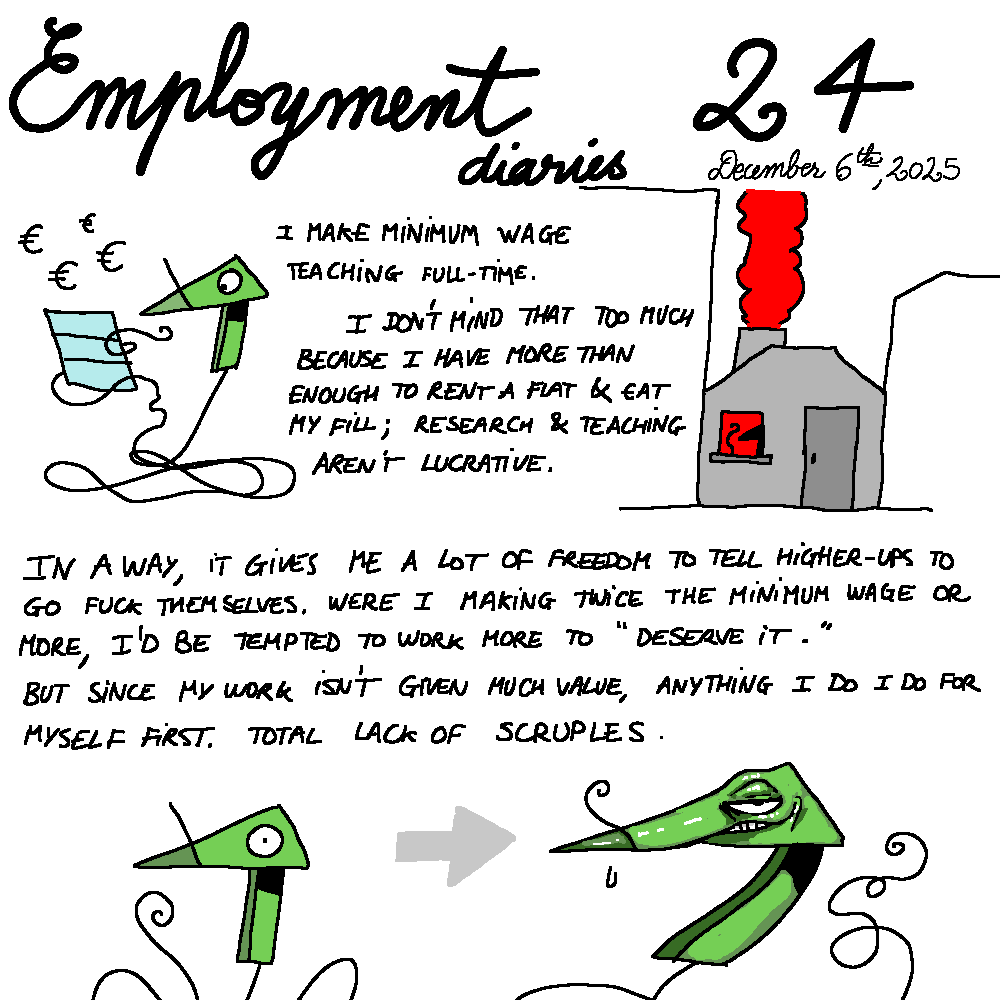 Employment 24
diaries
December 6th, 2025
€ € € €
I MAKE MINIMUM WAGE
TEACHING FULL-TIME.
I DON'T MIND THAT TOO MUCH
BECAUSE I HAVE MORE THAN
ENOUGH TO RENT A FLAT & EAT
MY FILL; RESEARCH & TEACHING
AREN'T LUCRATIVE.
IN A WAY, IT GIVES ME A LOT OF FREEDOM TO TELL HIGHER-UPS TO
GO FUCK THEMSELVES. WERE I MAKING TWICE THE MINIMUM WAGE OR
MORE, I'D BE TEMPTED TO WORK MORE TO "DESERVE IT."
BUT SINCE MY WORK ISN'T GIVEN MUCH VALUE, ANYTHING I DO I DO FOR
MYSELF FIRST. TOTAL LACK OF SCRUPLES.